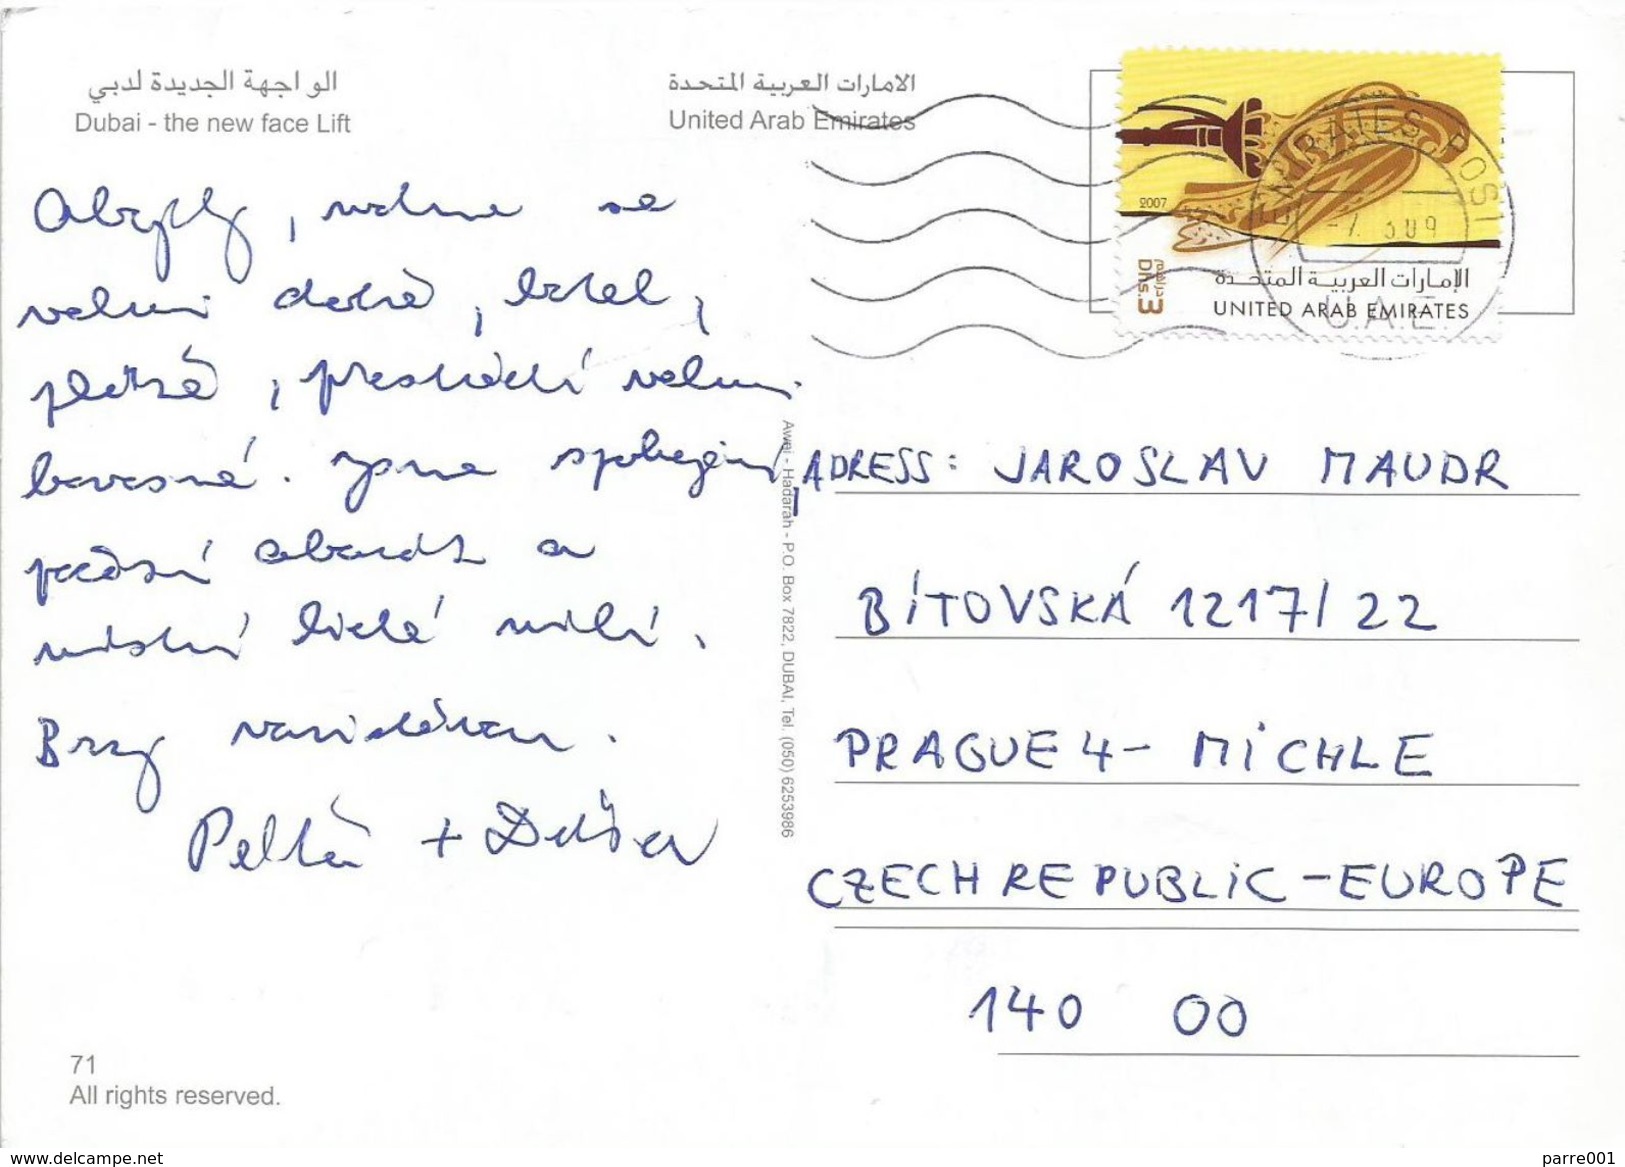 الواجهة الجديدة لدبي
Dubai - the new face Lift
الامارات العربية المتحدة
United Arab Emirates
2007
3 دراهم
Dhs.3
الإمارات العربية المتحدة
UNITED ARAB EMIRATES
EMIRATES POST
U.A.E.
se
velmi dobře, hotel,
pláže, prostředí velmi
krásné. Jsme spokojeni,
počasí a
místní lidé milí.
Brzy nashledanou.
+ Dušan
Awei - Hadarah - P.O. Box 7822, DUBAI, Tel. (050) 6253986
ADRESS: JAROSLAV MAUDR
BÍTOVSKÁ 1217/22
PRAGUE 4 - MICHLE
CZECH REPUBLIC - EUROPE
140 00
71
All rights reserved.
www.delcampe.net
parre001